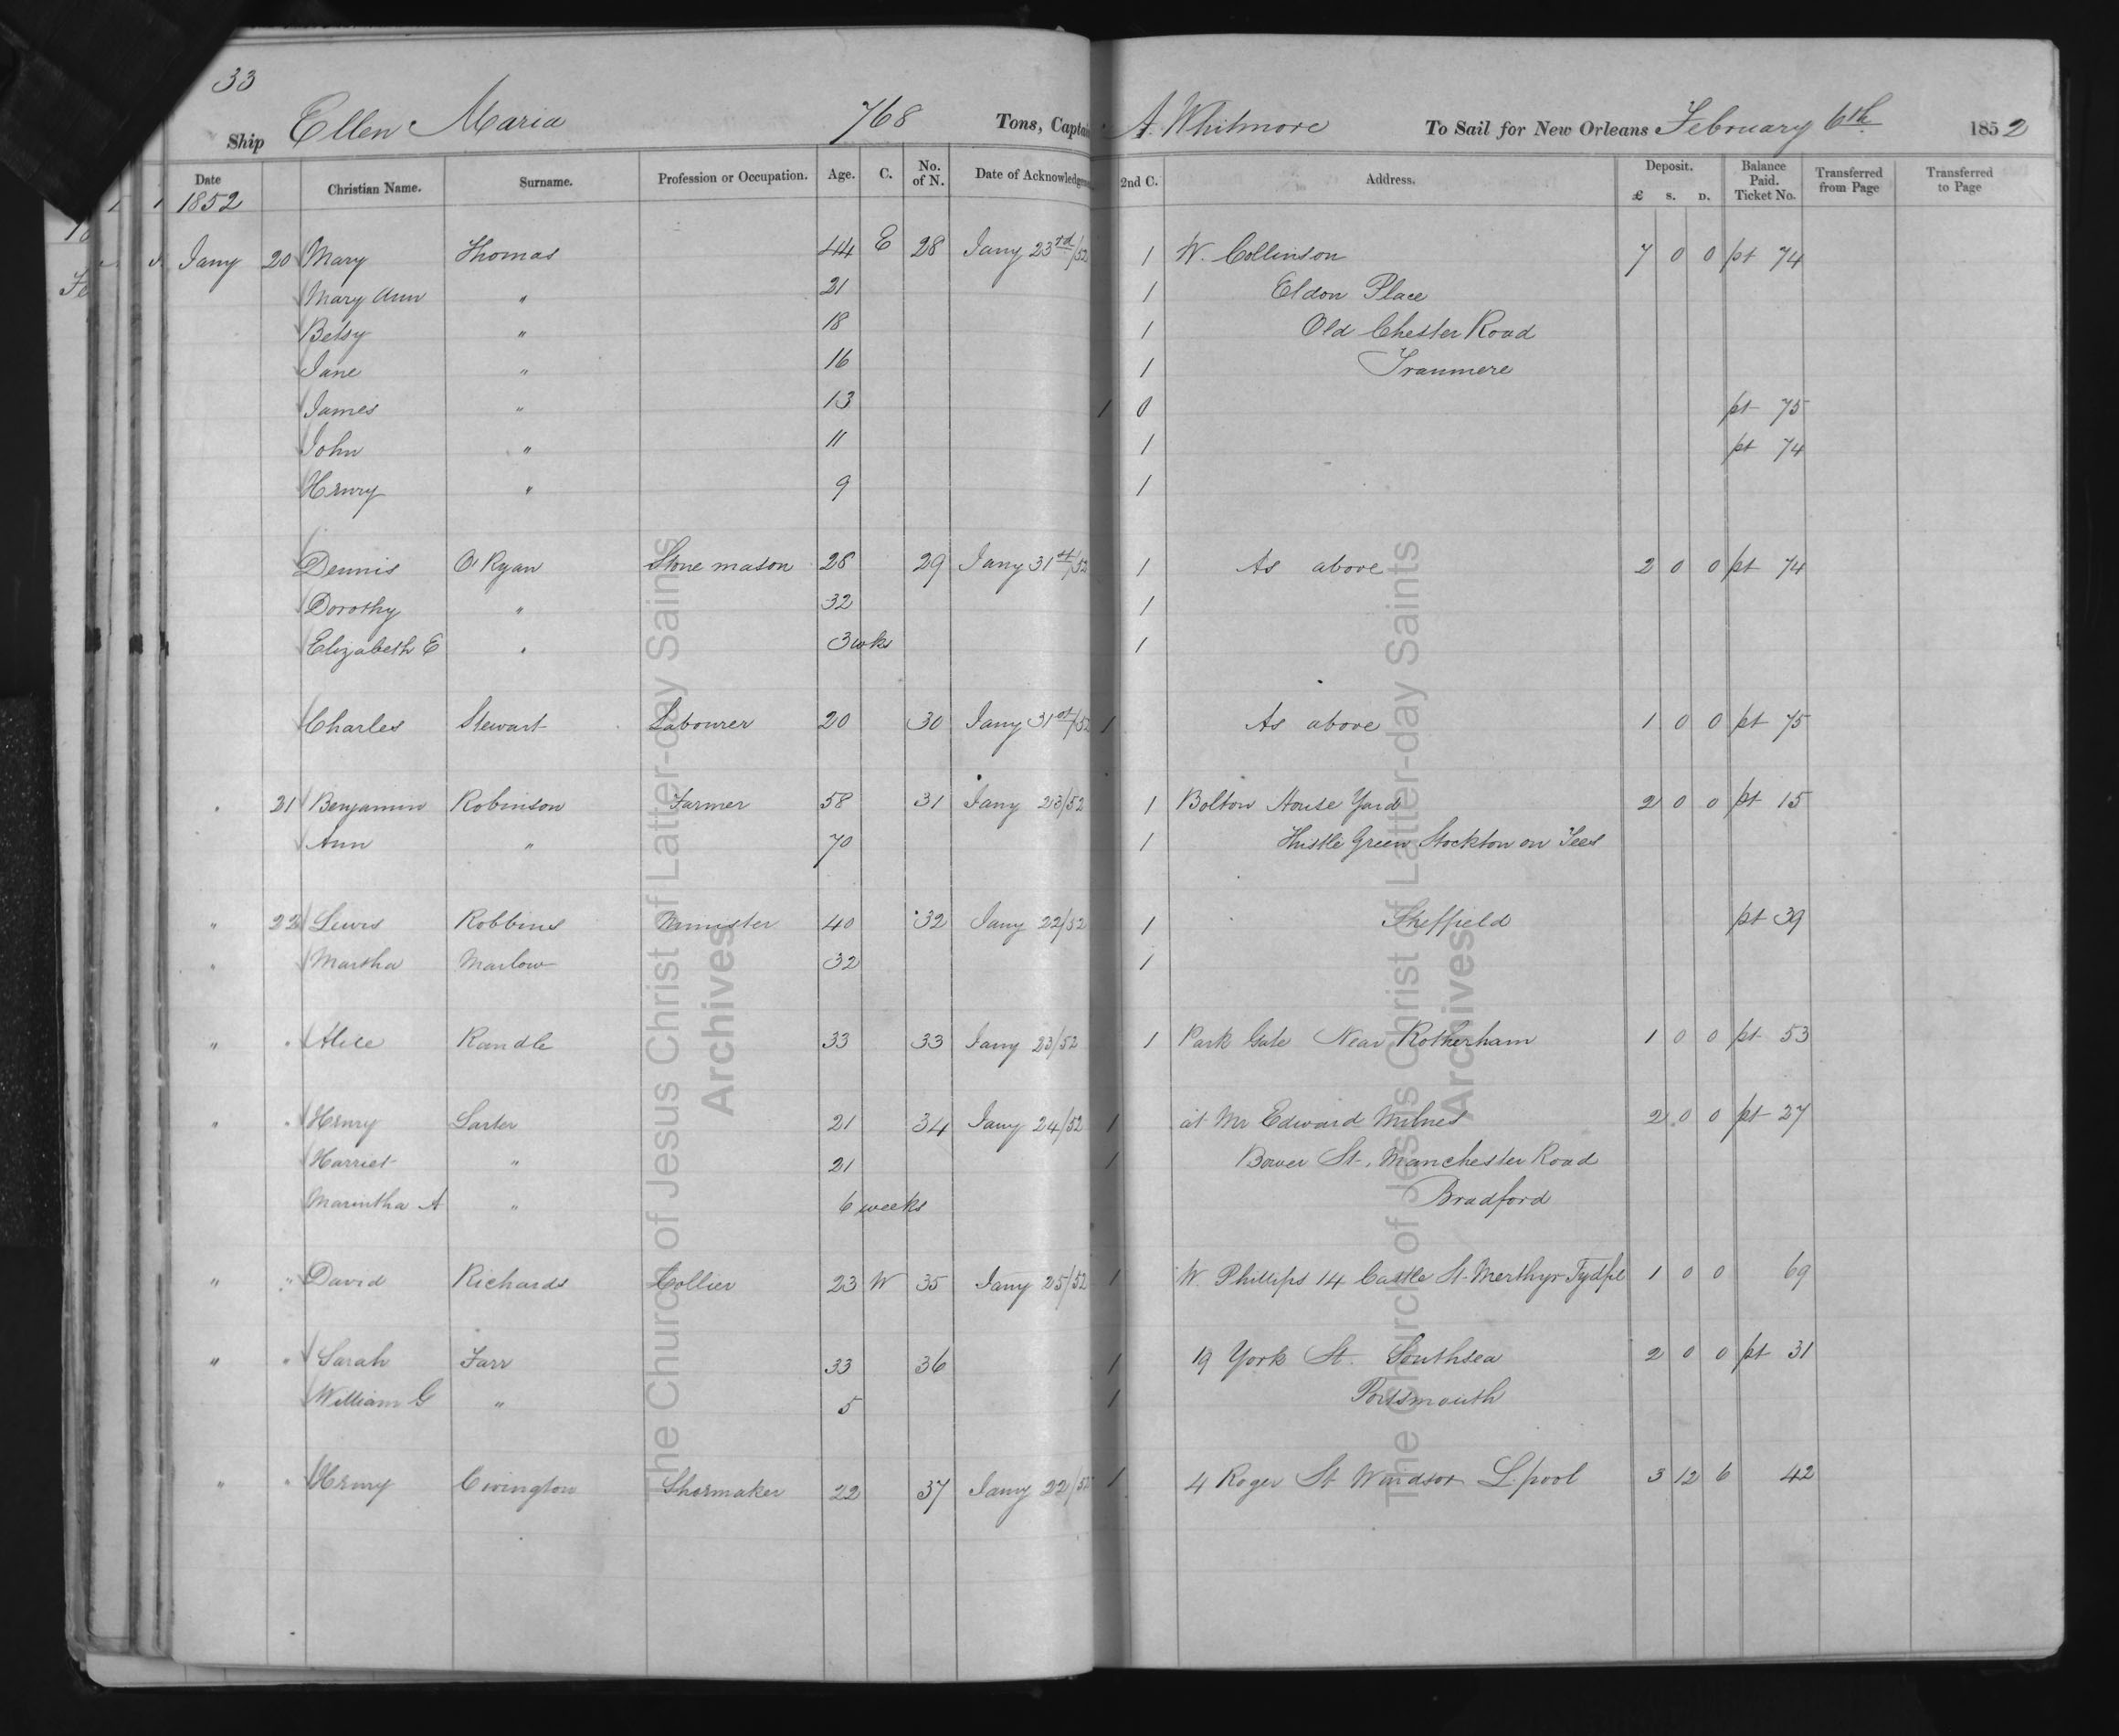 33
Ship Ellen Maria 768 Tons, Captain A. Whitmore To Sail for New Orleans February 6th 1852
Date Christian Name. Surname. Profession or Occupation. Age. C. No. of N. Date of Acknowledgem 2nd C. Address. Deposit. £ s. D. Balance Paid. Ticket No. Transferred from Page Transferred to Page
1852
Jany 20 Mary Thomas 44 E 28 Jany 23rd/52 1 W. Collinson 7 0 0 pt 74
Mary Ann " 21 1 Eldon Place
Betsy " 18 1 Old Chester Road
Jane " 16 1 Tranmere
James " 13 1 0 pt 75
John " 11 1 pt 74
Henry " 9 1
Dennis O'Ryan Stone mason 28 29 Jany 31st/52 1 As above 2 0 0 pt 74
Dorothy " 32 1
Elizabeth E " 3 wks 1
Charles Stewart Labourer 20 30 Jany 31st/52 1 As above 1 0 0 pt 75
" 21 Benjamin Robinson Farmer 58 31 Jany 23/52 1 Bolton House Yard 2 0 0 pt 15
Ann " 70 1 Thistle Green Stockton on Tees
" 22 Lewis Robbins Minister 40 32 Jany 22/52 1 Sheffield pt 39
" Martha Marlow 32 1
" " Alice Randle 33 33 Jany 23/52 1 Park Gate Near Rotherham 1 0 0 pt 53
" " Henry 21 34 Jany 24/52 1 at Mr Edward Milnes 2 0 0 pt 27
Harriet " 21 1 Bower St. Manchester Road
A " 6 weeks Bradford
" " David Richards Collier 23 W 35 Jany 25/52 1 W. Phillips 14 Castle St. Merthyr Tydfil 1 0 0 69
" " Sarah Farr 33 36 1 19 York St. Southsea 2 0 0 pt 31
William G " 5 1 Portsmouth
" " Henry Civington Shoemaker 22 37 Jany 22/52 1 4 Roger St Windsor L.pool 3 12 6 42
The Church of Jesus Christ of Latter-day Saints
Archives
The Church of Jesus Christ of Latter-day Saints
Archives